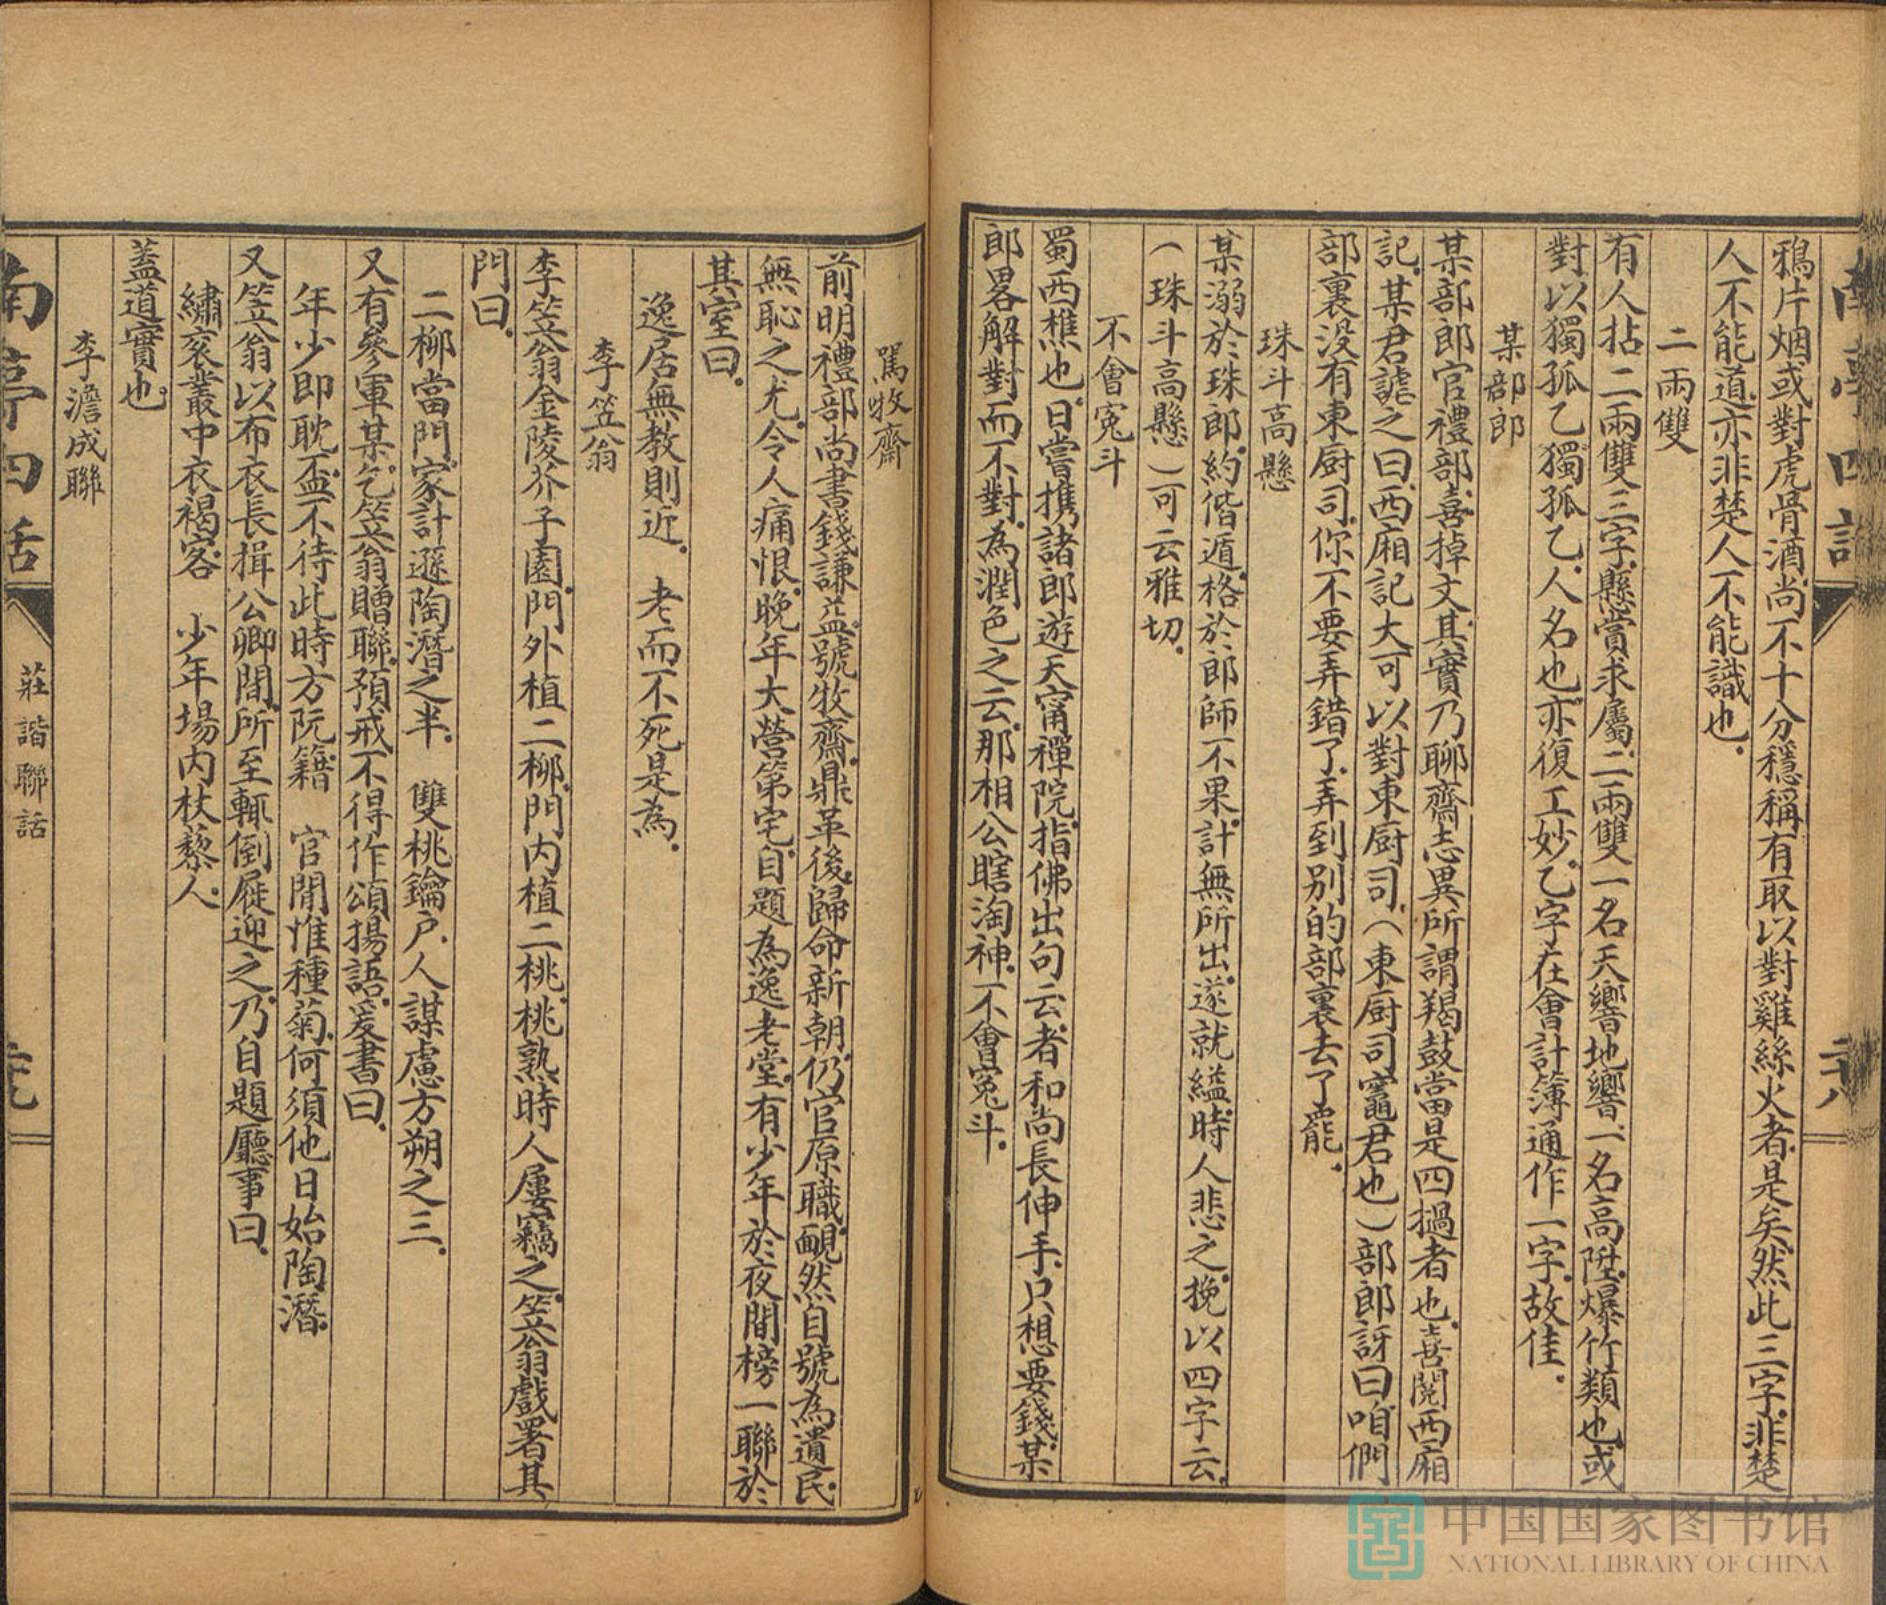 南亭四話
鴉片烟或對虎骨酒尚不十分穩稱有取以對雞絲火者是矣然此三字非楚
人不能道亦非楚人不能識也
二兩雙
有人拈二兩雙三字懸賞求屬二兩雙一名天響地響一名高陞爆竹類也或
對以獨孤乙獨孤乙人名也亦復工妙乙字在會計簿通作一字故佳
某部郎
某部郎官禮部喜掉文其實乃聊齋志異所謂羯鼓當是四撾者也喜閱西廂
記某君謔之曰西廂記大可以對東厨司(東厨司竈君也)部郎訝曰咱們
部裏没有東厨司你不要弄錯了弄到别的部裏去了罷
珠斗高懸
某溺於珠郎約偕遁格於郎師不果計無所出遂就縊時人悲之挽以四字云
(珠斗高懸)可云雅切
不會寃斗
蜀西樵也曰嘗携諸郎遊天甯禪院指佛出句云者者和尚長伸手只想要錢某
郎畧解對而不對為潤色之云那相公瞎淘神不會寃斗
罵牧齋
前明禮部尚書錢謙益號牧齋鼎革後歸命新朝仍官原職靦然自號為遺民
無恥之尤令人痛恨晚年大營第宅自題為逸老堂有少年於夜間榜一聯於
其室曰
逸居無教則近　老而不死是為
李笠翁
李笠翁金陵芥子園門外植二柳門内植二桃桃熟時人屢竊之笠翁戲署其
門曰
二柳當門家計遜陶潛之半　雙桃鑰户人謀慮方朔之三
又有參軍某乞笠翁贈聯預戒不得作頌揚語爰書曰
年少即耽盃不待此時方阮籍　官閒惟種菊何須他日始陶潛
又笠翁以布衣長揖公卿間所至輒倒屣迎之乃自題廳事曰
繡衮叢中衣褐客　少年場内杖藜人
蓋道實也
李澹成聯
南亭四話
莊諧聯話
中国国家图书馆
NATIONAL LIBRARY OF CHINA